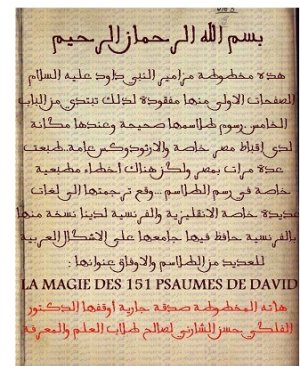 بسم الله الرحمان الرحيم
هذه مخطوطة مزامير النبي داود عليه السلام
الصفحات الاولى منها مفقودة لذلك تبتدئ من الباب
الخامس رسوم طلاسمها صحيحة وعندها مكانة
لدى اقباط مصر خاصة والارثودوكس عامة.طبعت
عدة مرات بمصر ولكن هناك أخطاء مطبعية
خاصة في رسم الطلاسم ...وقع ترجمتها الى لغات
عديدة خاصة الانقليزية والفرنسية لدينا نسخة منها
بالفرنسية حافظ فيها جامعها على الاشكال العربية
للعديد من الطلاسم والاوفاق عنوانها :
LA MAGIE DES 151 PSAUMES DE DAVID
هاته المخطوطة صدقة جارية أوقفها الدكتور
الفلكي حسن الشارني لصالح طلاب العلم والمعرفة